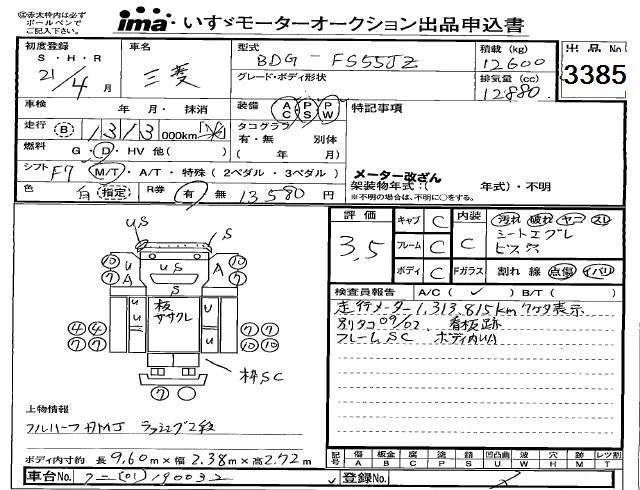 ㊟赤太枠内は必ず
ボールペンで
ご記入下さい。
ima・いすゞモーターオークション出品申込書
初度登録 S・H・R 21/4月
車名 三菱
型式 BDG-FS55JZ
グレード・ボディ形状
積載(kg) 12600
排気量(cc) 12880
出品No 3385
車検 年 月・抹消
装備 AC PS PW
特記事項
走行 B 1313 000km
タコグラフ 有・無 別体
( 年 月)
燃料 G・D・HV 他( )
シフト F7 M/T・A/T・特殊(2ペダル・3ペダル)
メーター改ざん
架装物年式:( 年式)・不明
※不明の場合は、不明に○をする。
色 白(指定) R券 有 無 13580円
評価 3.5
キャブ C
フレーム C
ボディ C
内装 C
Fガラス
汚れ 破れ ヤコ スレ
シートエグレ
ビス穴
割れ 線 点傷 イバリ
検査員報告 A/C( ✓ ) B/T( )
走行メーター1,313,815km 7ケタ表示
別タコ09/02. 看板跡
フレームSC ボディ内UA
US S
10 7 U A US A 10 7
S
板ササクレ
U U U U
4 4 7 7
7 7 10 10
7
枠SC
上物情報
フルハーフ
ラッシング2段
ボディ内寸約 長9.60m×幅2.38m×高2.72m
記号 傷A 板金B 腐C 塗P 錆S 凹凸曲U 波W 穴H 跡M レツ割T
車台No.
登録No.